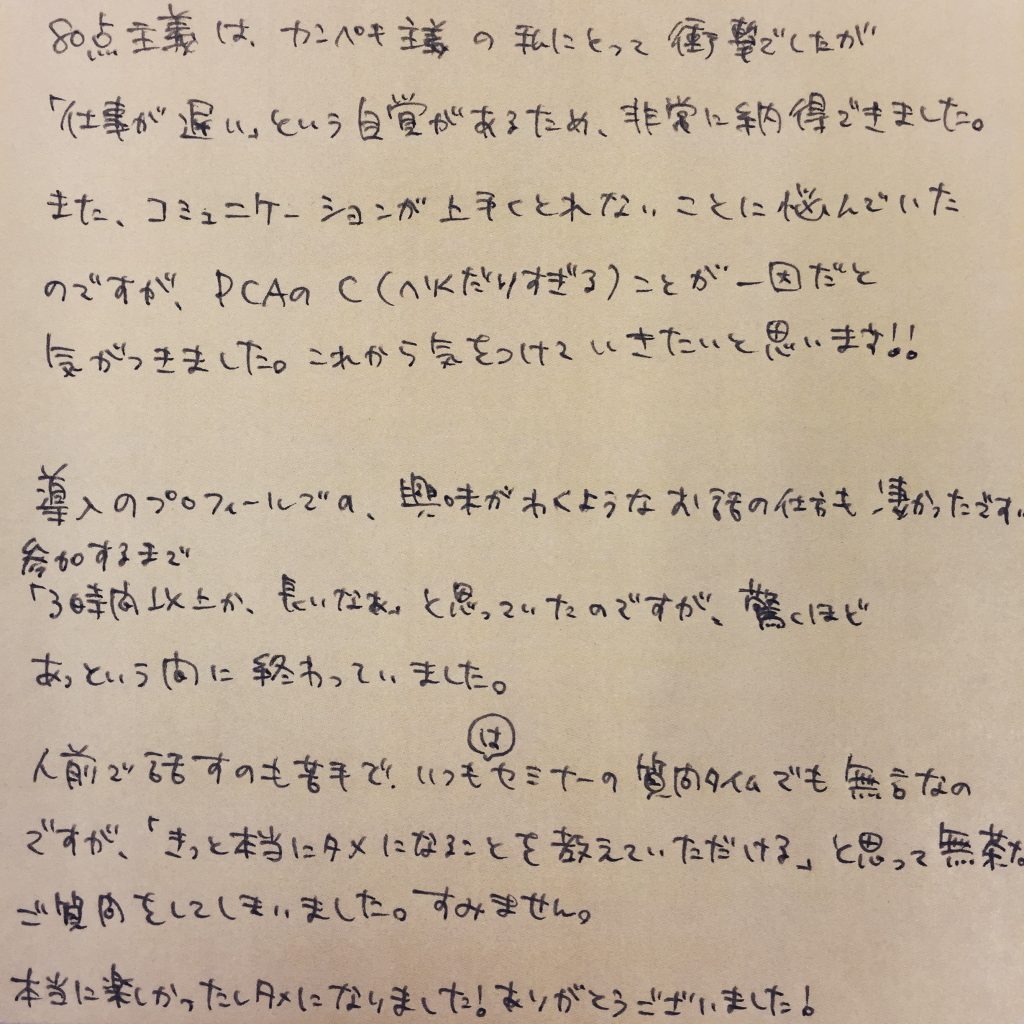 80点主義は、カンペキ主義の私にとって衝撃でしたが
「仕事が遅い」という自覚があるため、非常に納得できました。
また、コミュニケーションが上手くとれないことに悩んでいた
のですが、PCAのC(へりくだりすぎる)ことが一因だと
気がつきました。これから気をつけていきたいと思います!!
導入のプロフィールでの、興味がわくようなお話の仕方も凄かったです。
参加するまで
「3時間以上か、長いなぁ」と思っていたのですが、驚くほど
あっという間に終わっていました。
は
人前で話すのも苦手で、いつもセミナーの質問タイムでも無言なの
ですが、「きっと本当にタメになることを教えていただける」と思って無茶な
ご質問をしてしまいました。すみません。
本当に楽しかったしタメになりました!ありがとうございました!